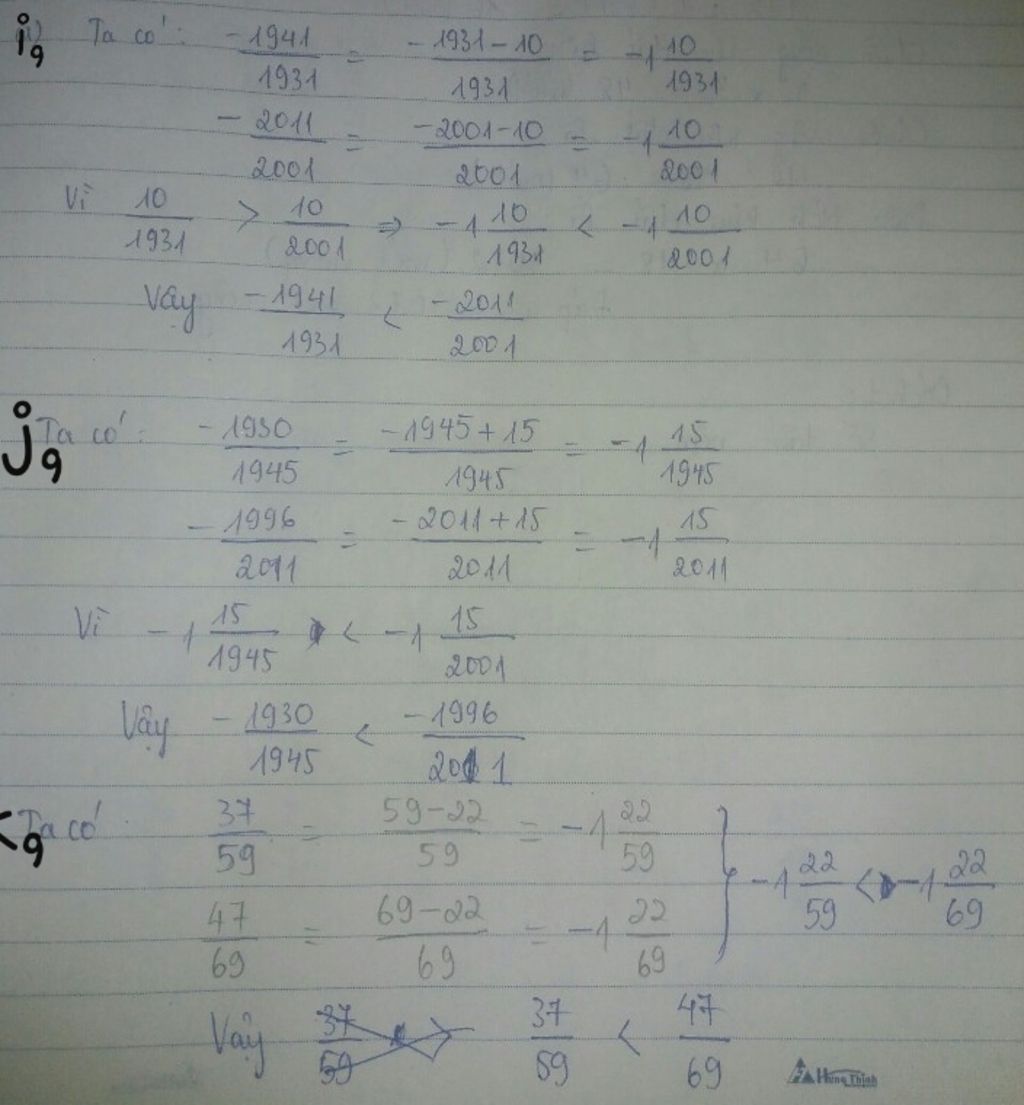 i, Ta có: -1941/1931 = -1931-10/1931 = -1 10/1931
-2011/2001 = -2001-10/2001 = -1 10/2001
Vì 10/1931 > 10/2001 ⇒ -1 10/1931 < -1 10/2001
Vậy -1941/1931 < -2011/2001
j, Ta có: -1930/1945 = -1945+15/1945 = -1 15/1945
-1996/2011 = -2011+15/2011 = -1 15/2011
Vì -1 15/1945 < -1 15/2001
Vậy -1930/1945 < -1996/2011
Ta có 37/59 = 59-22/59 = -1 22/59
47/69 = 69-22/69 = -1 22/69 } -1 22/59 < -1 22/69
Vậy 37/59 < 47/69
Hưng Thịnh